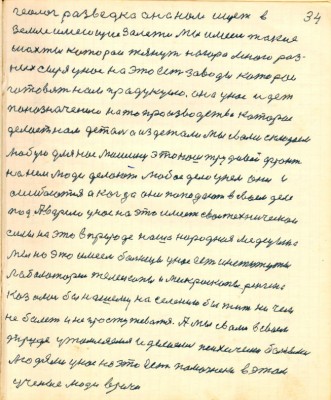 34
геолог разведка она нам ищет в
земле имеющие залежи мы имеем такие
шахты которои тянут нагора много раз-
них сырья у нас на это есть заводы которои
готовят нам продукцию, она у нас идет
по назначению на то производство которои
делает нам детали изделали мы свами
любую для нас машину это наш трудовой фронт
на нем люди делают любое дело умея они и
ошибаются а когда они попадают в своем деле
под у нас на это имеет свои технические
силы на это в природе наша народная медицина
мы на это имеем больници у нас есть институты
лаболатории телескопы и микроскопы
как оны бы нашему на селению бы жить ни чем
не болеть и не простуживатся. А мы свами в своем
труде утомляемся и делаемся психически больными
людями у нас на это есть в этом
ученые люди врачи